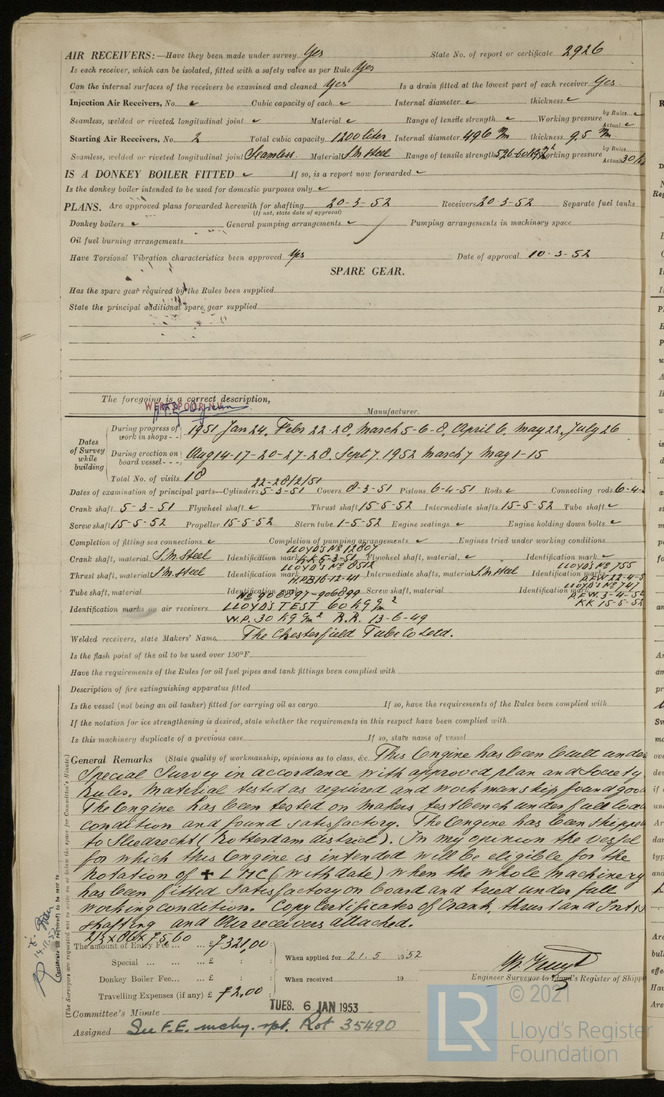 AIR RECEIVERS:—Have they been made under survey Yes State No. of report or certificate 2926
Is each receiver, which can be isolated, fitted with a safety valve as per Rule Yes
Can the internal surfaces of the receivers be examined and cleaned Yes Is a drain fitted at the lowest part of each receiver Yes.
Injection Air Receivers, No. Cubic capacity of each Internal diameter thickness
Seamless, welded or riveted longitudinal joint Material Range of tensile strength Working pressure by Rules Actual
Starting Air Receivers, No. 2 Total cubic capacity 1200 liter Internal diameter 496 m/m thickness 9,5 m/m
Seamless, welded or riveted longitudinal joint Seamless Material S.M. Steel Range of tensile strength Working pressure by Rules Actual
IS A DONKEY BOILER FITTED If so, is a report now forwarded
Is the donkey boiler intended to be used for domestic purposes only
PLANS. Are approved plans forwarded herewith for shafting 20-3-52 Receivers 20-3-52 Separate fuel tanks
(If not, state date of approval)
Donkey boilers General pumping arrangements Pumping arrangements in machinery space
Oil fuel burning arrangements
Have Torsional Vibration characteristics been approved Yes Date of approval 10-3-52
SPARE GEAR.
Has the spare gear required by the Rules been supplied
State the principal additional spare gear supplied
The foregoing is a correct description,
Manufacturer.
Dates of Survey while building
During progress of work in shops - - 1951 Jan 24, Febr 22-28, March 5-6-8, April 6, May 22, July 26
During erection on board vessel - - Aug 14-17-20-27-28, Sept 7, 1952 March 7 May 1-15
Total No. of visits 18
22-28/2/51
Dates of examination of principal parts—Cylinders 5-3-51 Covers 8-3-51 Pistons 6-4-51 Rods Connecting rods 6-4-
Crank shaft 5-3-51 Flywheel shaft Thrust shaft 15-5-52 Intermediate shafts 15-5-52 Tube shaft
Screw shaft 15-5-52 Propeller 15-5-52 Stern tube 1-5-52 Engine seatings Engine holding down bolts
Completion of fitting sea connections Completion of pumping arrangements Engines tried under working conditions
Crank shaft, material S.M. Steel Identification mark LLOYD'S No 12807 KK 5-3-51 Flywheel shaft, material, Identification mark
Thrust shaft, material S.M. Steel Identification mark LLOYD'S No 8512 H.P.B 16-12-41 Intermediate shafts, material S.M. Steel Identification marks LLOYD'S No 755
Tube shaft, material Identification mark Screw shaft, material Identification mark LLOYD'S No 747
KK 15-5-52
Identification marks on air receivers No 906897-906899 LLOYD'S TEST 60 kg/cm2
W.P. 30 kg/cm2 R.R. 13-6-49
Welded receivers, state Makers' Name The Chesterfield Tube Co Ltd.
Is the flash point of the oil to be used over 150°F.
Have the requirements of the Rules for oil fuel pipes and tank fittings been complied with
Description of fire extinguishing apparatus fitted
Is the vessel (not being an oil tanker) fitted for carrying oil as cargo If so, have the requirements of the Rules been complied with
If the notation for ice strengthening is desired, state whether the requirements in this respect have been complied with
Is this machinery duplicate of a previous case If so, state name of vessel
General Remarks (State quality of workmanship, opinions as to class, &c. This Engine has been built under
Special Survey in accordance with approved plan and Society
Rules. Material tested as required and workmanship found good
The Engine has been tested on makers testbench under full load
condition and found satisfactory. The Engine has been shipped
to Sliedrecht (Rotterdam district). In my opinion the vessel
for which this Engine is intended will be eligible for the
Notation of ✠ LMC (with date) when the whole machinery
has been fitted satisfactory on board and tried under full
working condition. Copy certificates of crank, thrust and Int
shafting and Air receivers attached.
The amount of Entry Fee ... ƒ 321,00
Special ... ... £ : When applied for 21.5 1952
Donkey Boiler Fee... ... £ : When received 19
Travelling Expenses (if any) £ ƒ 2,00
Engineer Surveyor to Lloyd's Register of Shipp
Committee's Minute TUES. 6 JAN 1953
Assigned See F.E. mchy. rpt. Rot 35490
© 2021
Lloyd's Register
Foundation